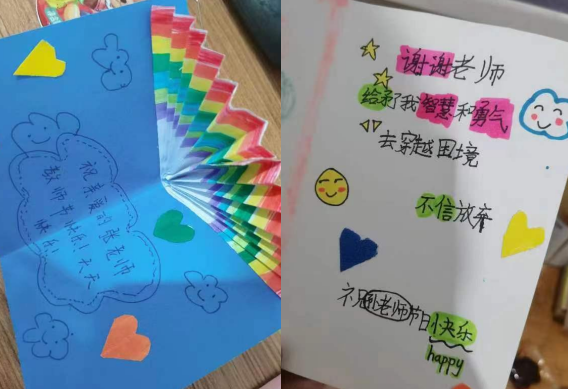 祝亲爱的张老师
教师节快乐！天天
快乐！
谢谢老师
给予了我智慧和勇气
去穿越困境
不信放弃
祝老师节日快乐
happy